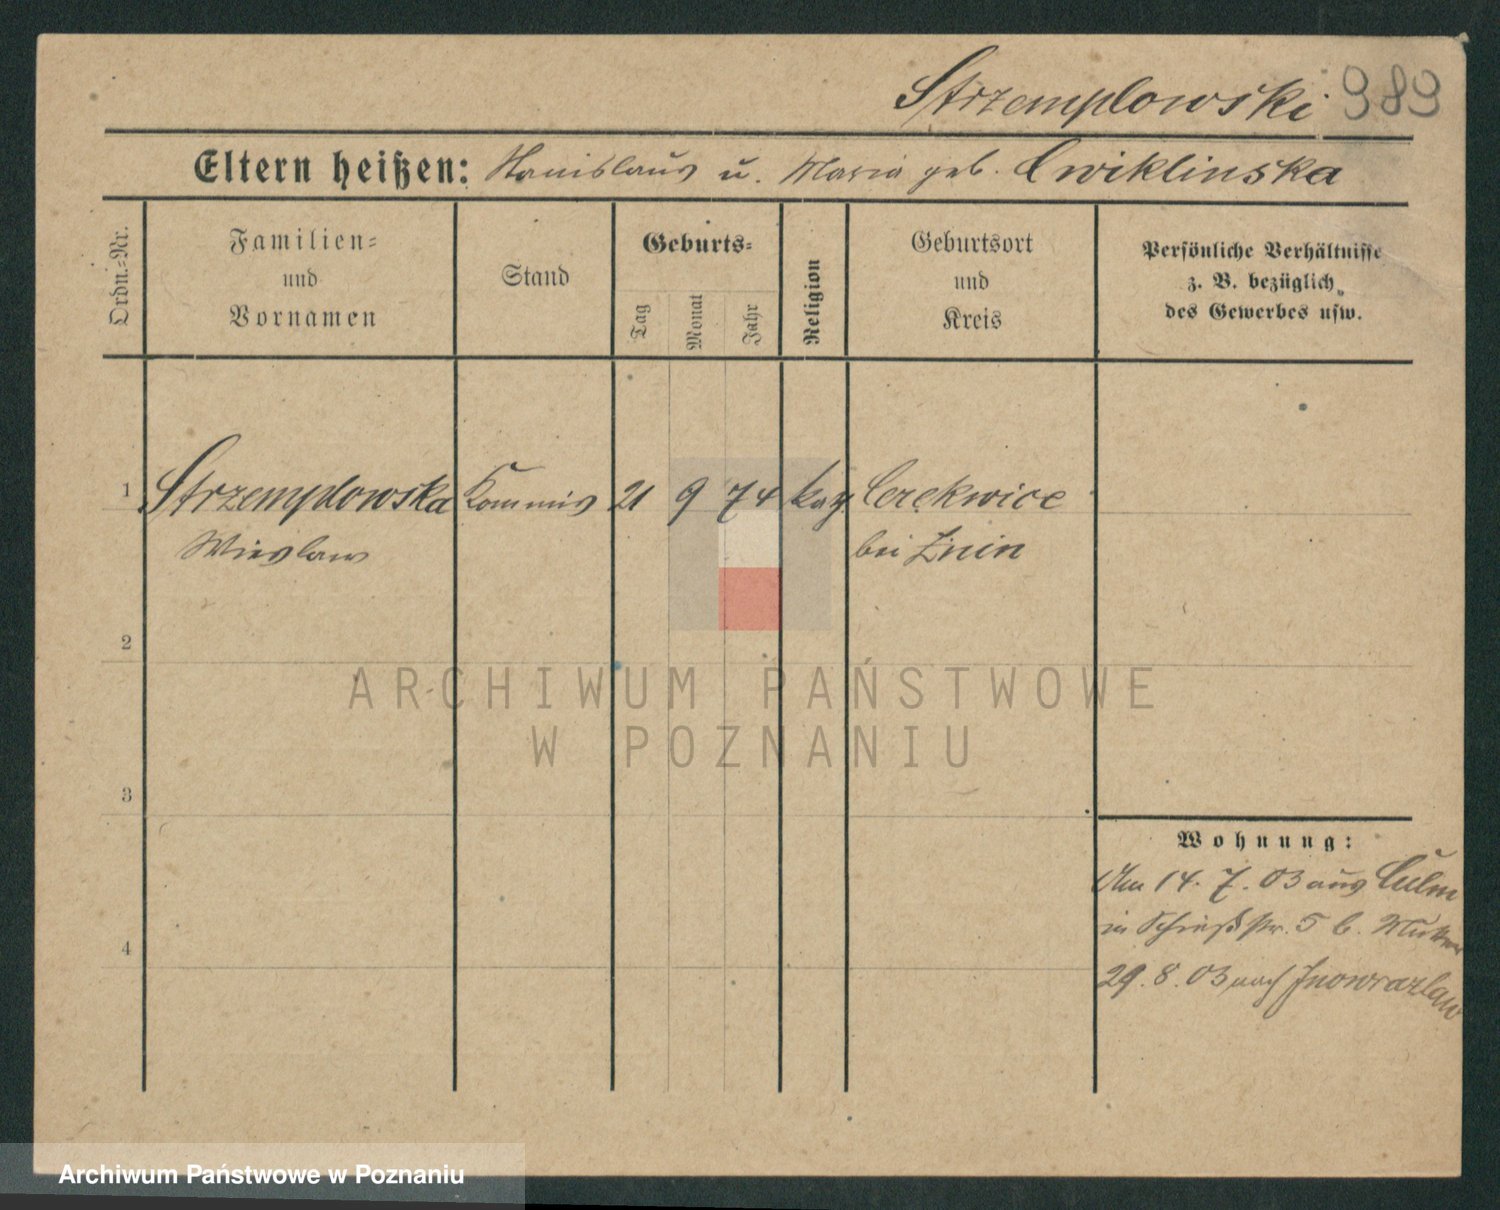 Strzemplowski 989
Eltern heißen: Stanislaus u. Maria geb. Cwiklinska
Ordn.-Nr.
Familien-
und
Vornamen
Stand
Geburts-
Tag
Monat
Jahr
Religion
Geburtsort
und
Kreis
Persönliche Verhältnisse
z. B. bezüglich
des Gewerbes usw.
1 Strzemplowska Kommis 21 9 74 kay Cerekwice
Wieslaw bei Żnin
2
ARCHIWUM PAŃSTWOWE
W POZNANIU
3
Wohnung:
14. 7. 03 aus Culm
in Schießstr. 5 b. Mutter
4
29. 8. 03 nach Inowrazlaw
Archiwum Państwowe w Poznaniu